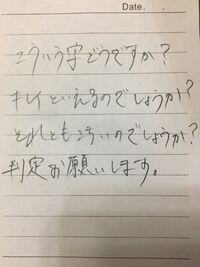 Date.
こういう字どうですか?
キレイといえるのでしょうか?
それとも汚いのでしょうか?
判定お願いします。